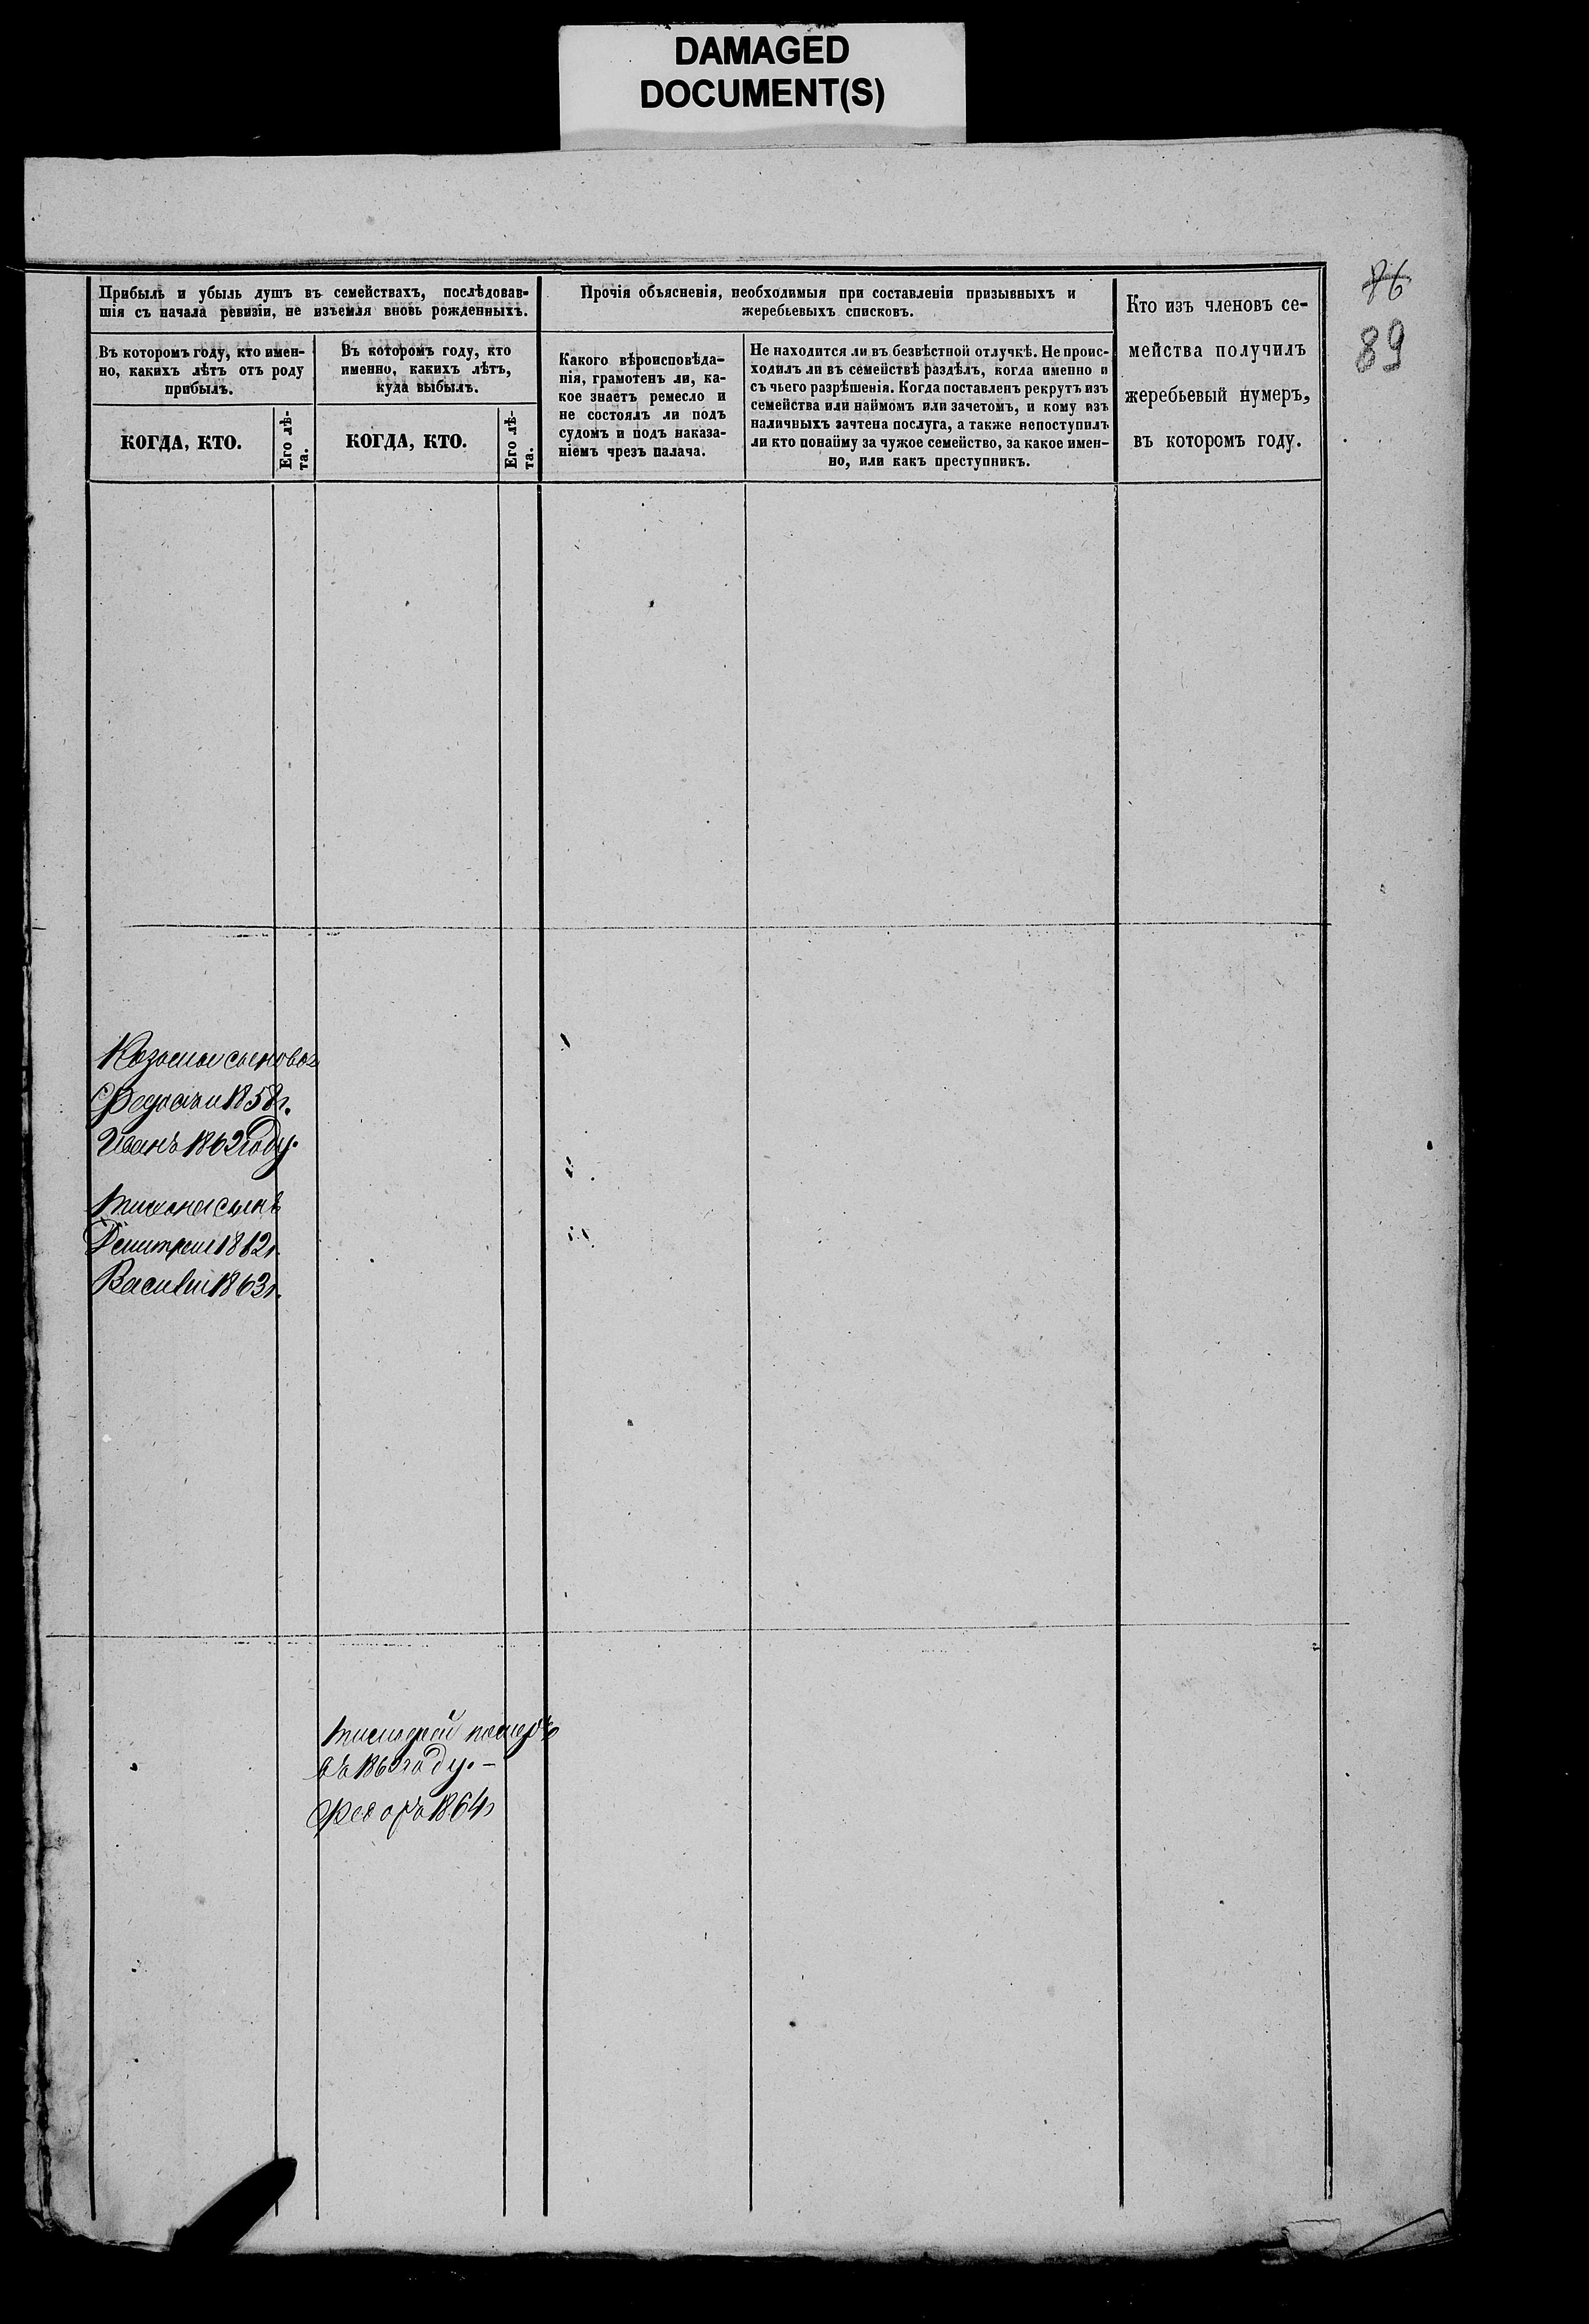 DAMAGED
DOCUMENT(S)
86
89
Прибыль и убыль душъ въ семействахъ, послѣдовав-
шія съ начала ревизіи, не изъемля вновь рожденныхъ.
Прочія объясненія, необходимыя при составленіи призывныхъ и
жеребьевыхъ списковъ.
Кто изъ членовъ се-
мейства получилъ
жеребьевый нумеръ,
въ которомъ году.
Въ которомъ году, кто имен-
но, какихъ лѣтъ отъ роду
прибылъ.
Въ которомъ году, кто
именно, какихъ лѣтъ,
куда выбылъ.
Какого вѣроисповѣда-
нія, грамотенъ ли, ка-
кое знаетъ ремесло и
не состоялъ ли подъ
судомъ и подъ наказа-
ніемъ чрезъ палача.
Не находится ли въ безвѣстной отлучкѣ. Не проис-
ходилъ ли въ семействѣ раздѣлъ, когда именно и
съ чьего разрѣшенія. Когда поставленъ рекрутъ изъ
семейства или наймомъ или зачетомъ, и кому изъ
наличныхъ зачтена послуга, а также непоступилъ
ли кто понайму за чужое семейство, за какое имен-
но, или какъ преступникъ.
КОГДА, КТО.
Его лѣ-
та.
КОГДА, КТО.
Его лѣ-
та.
Козьмы сыновья
1858г.
Иванъ 1862году.
сынъ
Дмитрий 1862г.
Василий 1863г.
Тимофей померъ
въ году. –
Федоръ 1864г